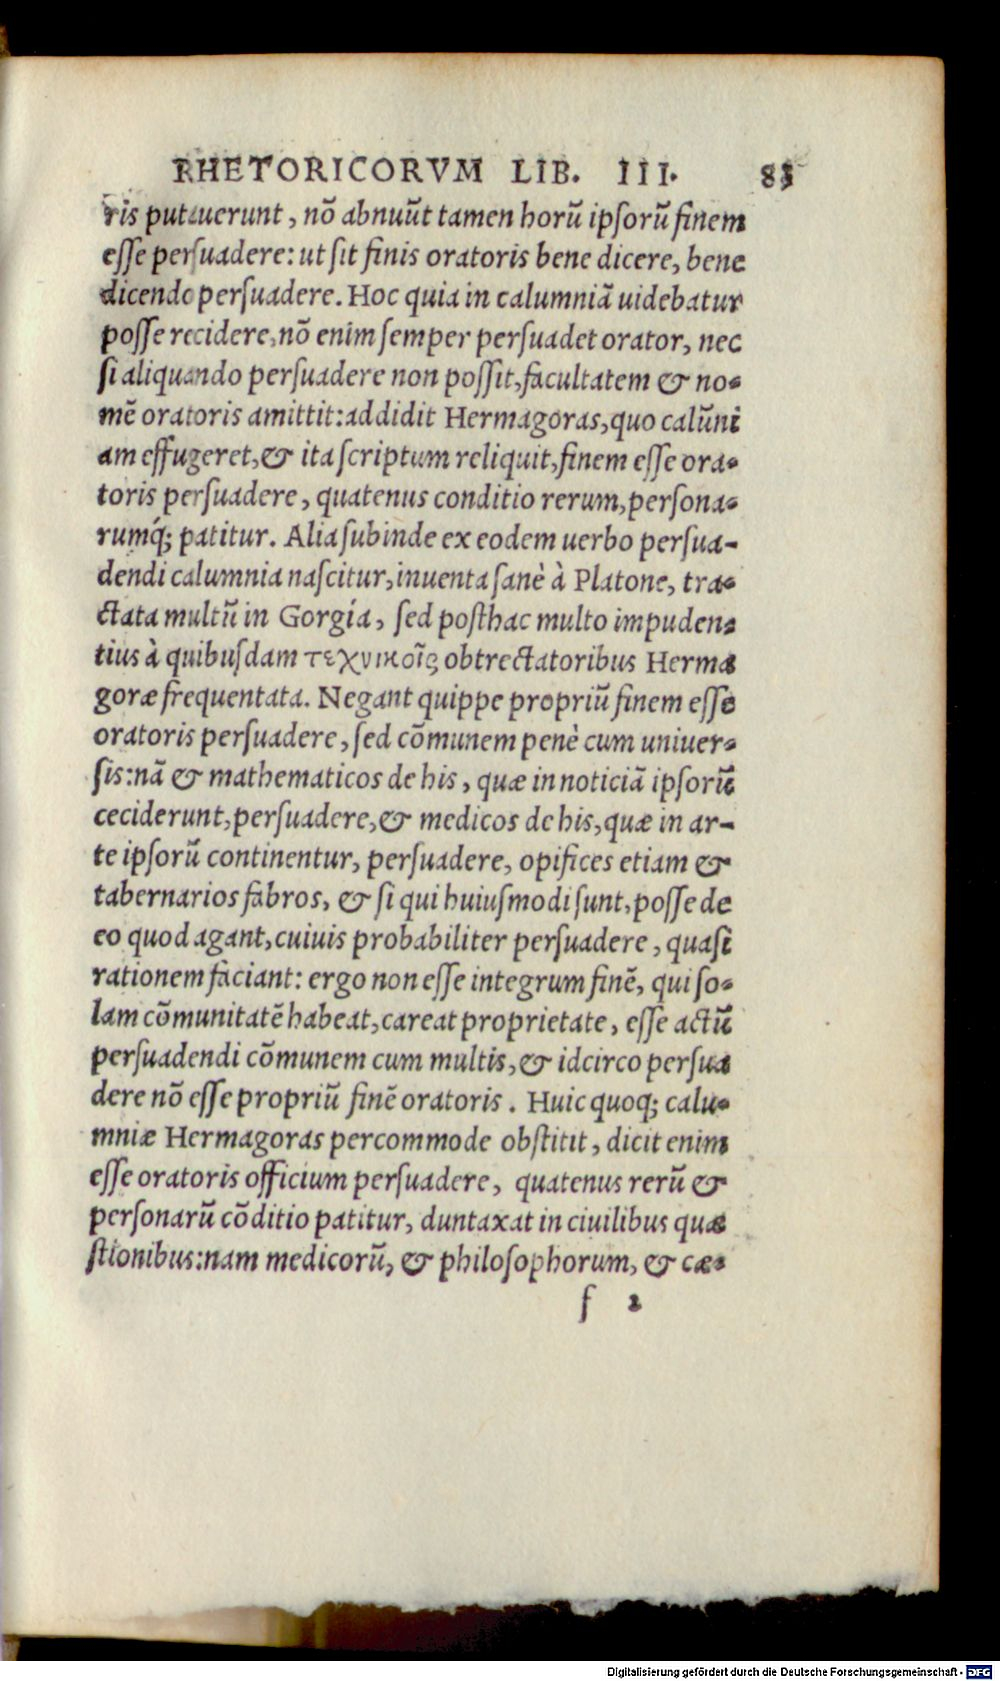 RHETORICORVM LIB. III. 83
ris putauerunt, nõ abnuũt tamen horũ ipsorũ finem
esse persuadere: ut sit finis oratoris bene dicere, bene
dicendo persuadere. Hoc quia in calumniã uidebatur
posse recidere, nõ enim semper persuadet orator, nec
si aliquando persuadere non possit, facultatem & no-
mẽ oratoris amittit: addidit Hermagoras, quo calũni
am effugeret, & ita scriptum reliquit, finem esse ora-
toris persuadere, quatenus conditio rerum, persona-
rumq́; patitur. Alia subinde ex eodem uerbo persua-
dendi calumnia nascitur, inuenta sanè à Platone, tra-
ctata multũ in Gorgía, sed posthac multo impuden-
tius à quibusdam τεχνικοῖς obtrectatoribus Herma
goræ frequentata. Negant quippe propriũ finem esse
oratoris persuadere, sed cõmunem penè cum uniuer-
sis: nã & mathematicos de his, quæ in noticiã ipsorũ
ceciderunt, persuadere, & medicos de his, quæ in ar-
te ipsorũ continentur, persuadere, opifices etiam &
tabernarios fabros, & si qui huiusmodi sunt, posse de
eo quod agant, cuiuis probabiliter persuadere, quasi
rationem faciant: ergo non esse integrum finẽ, qui so-
lam cõmunitatẽ habeat, careat proprietate, esse actũ
persuadendi cõmunem cum multis, & idcirco persua
dere nõ esse propriũ finẽ oratoris. Huic quoq; calu-
mniæ Hermagoras percommode obstitit, dicit enim
esse oratoris officium persuadere, quatenus rerũ &
personarũ cõditio patitur, duntaxat in ciuilibus quæ
stionibus: nam medicorũ, & philosophorum, & cæ-
f 2
Digitalisierung gefördert durch die Deutsche Forschungsgemeinschaft - DFG